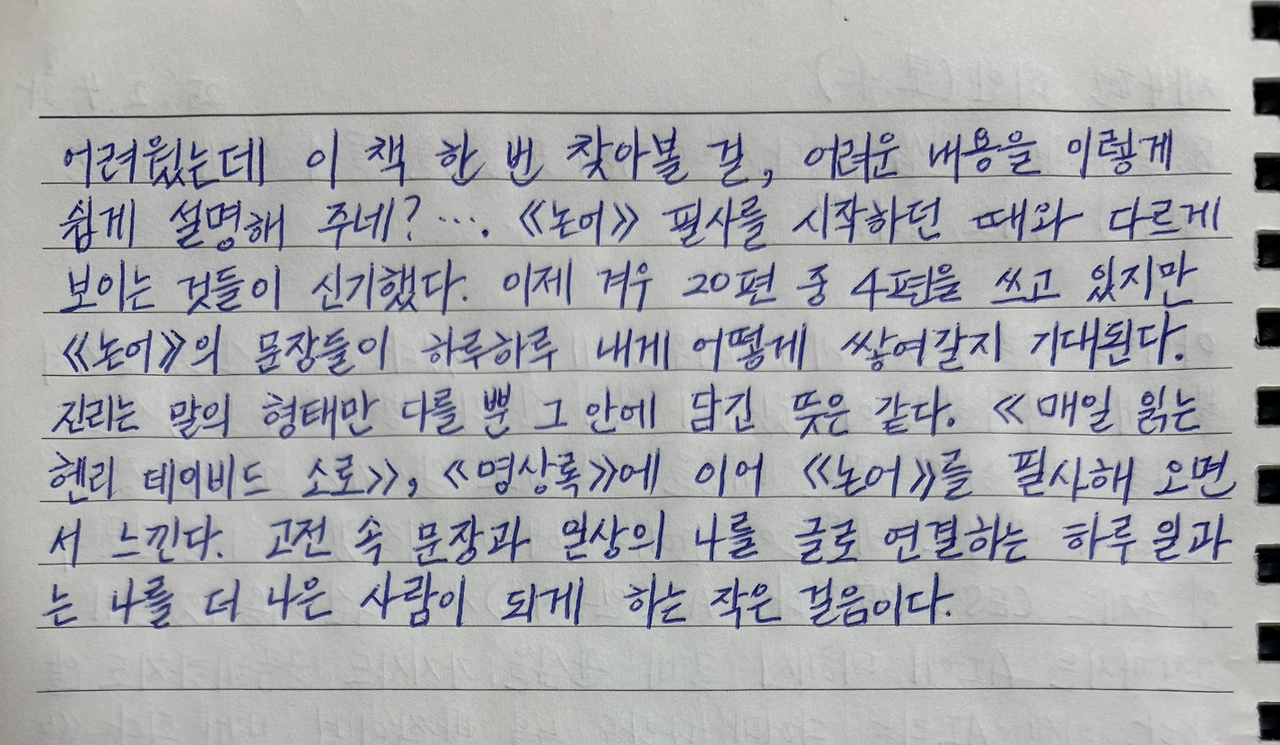 어려웠는데 이 책 한 번 찾아볼 걸, 어려운 내용을 이렇게
쉽게 설명해 주네?···. 《논어》 필사를 시작하던 때와 다르게
보이는 것들이 신기했다. 이제 겨우 20편 중 4편을 쓰고 있지만
《논어》의 문장들이 하루하루 내게 어떻게 쌓여갈지 기대된다.
진리는 말의 형태만 다를 뿐 그 안에 담긴 뜻은 같다. 《매일 읽는
헨리 데이비드 소로》, 《명상록》에 이어 《논어》를 필사해 오면
서 느낀다. 고전 속 문장과 일상의 나를 글로 연결하는 하루 일과
는 나를 더 나은 사람이 되게 하는 작은 걸음이다.